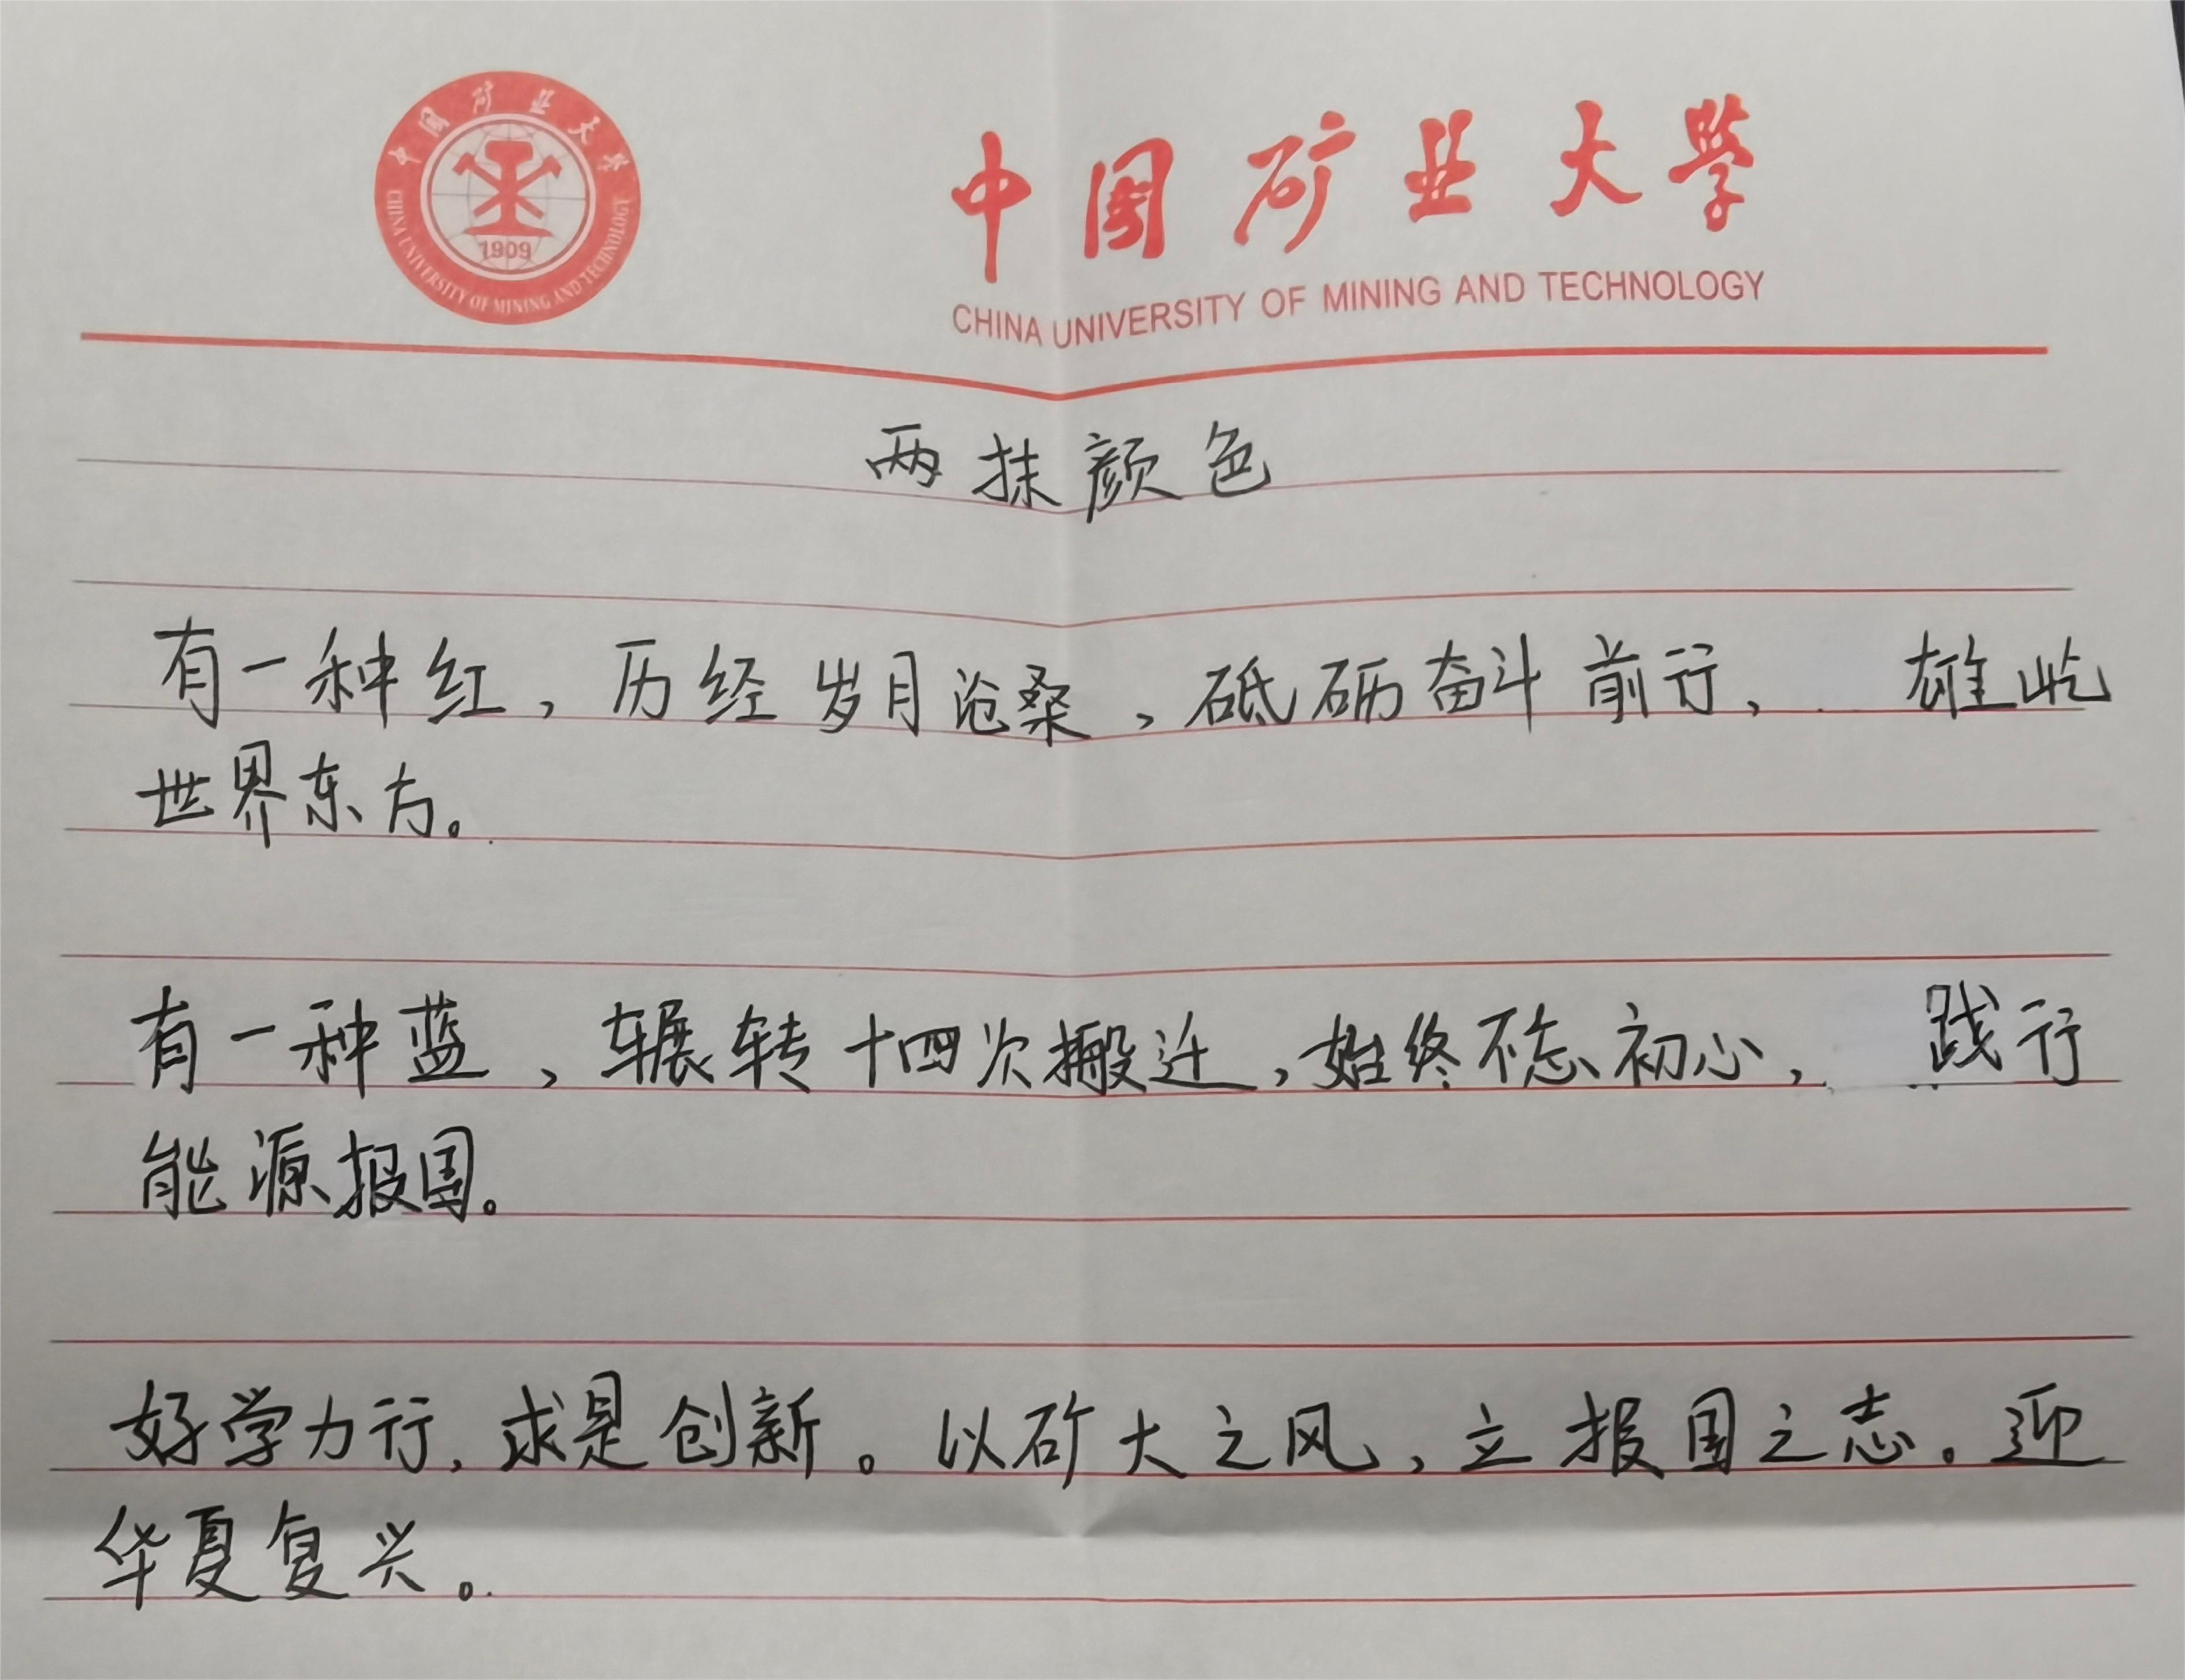 中国矿业大学
CHINA UNIVERSITY OF MINING AND TECHNOLOGY
1909
中国矿业大学
CHINA UNIVERSITY OF MINING AND TECHNOLOGY
两抹颜色
有一种红，历经岁月沧桑，砥砺奋斗前行，雄屹
世界东方。
有一种蓝，辗转十四次搬迁，始终不忘初心，践行
能源报国。
好学力行，求是创新。以矿大之风，立报国之志。迎
华夏复兴。